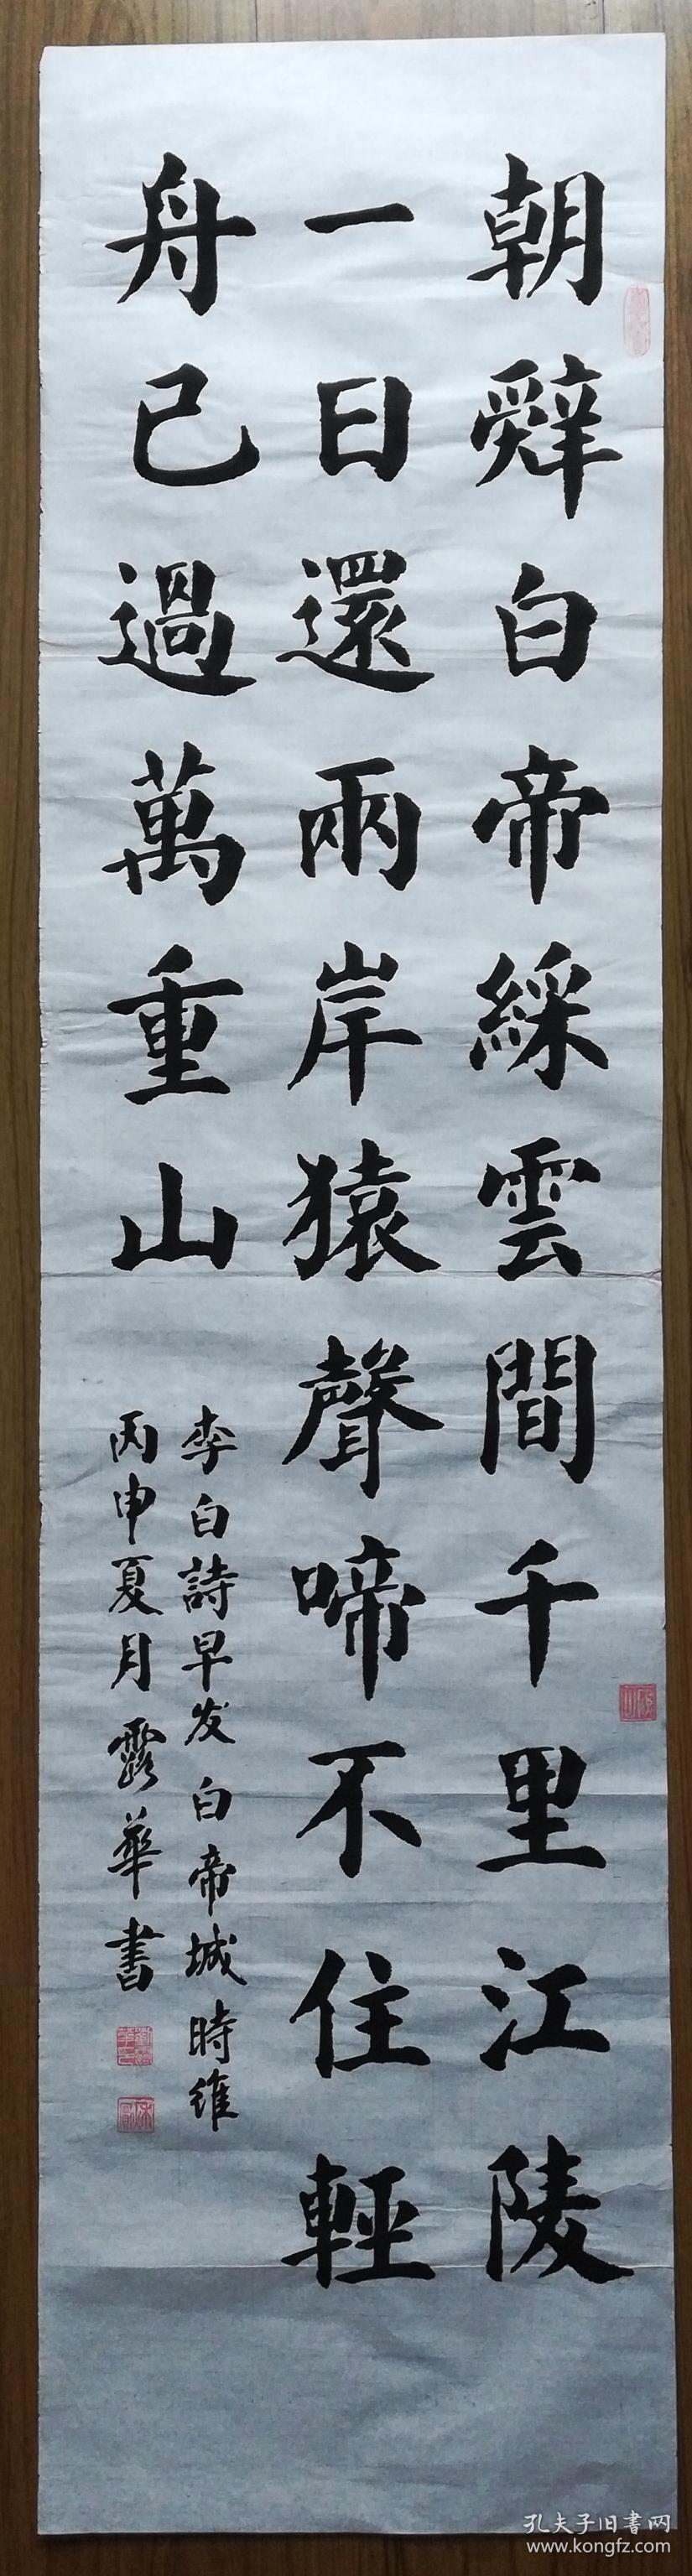 朝辤白帝綵雲間千里江陵
一日還兩岸猿聲啼不住輕
舟已過萬重山
李白詩早发白帝城時維
丙申夏月露華書
孔夫子旧书网
www.kongfz.com